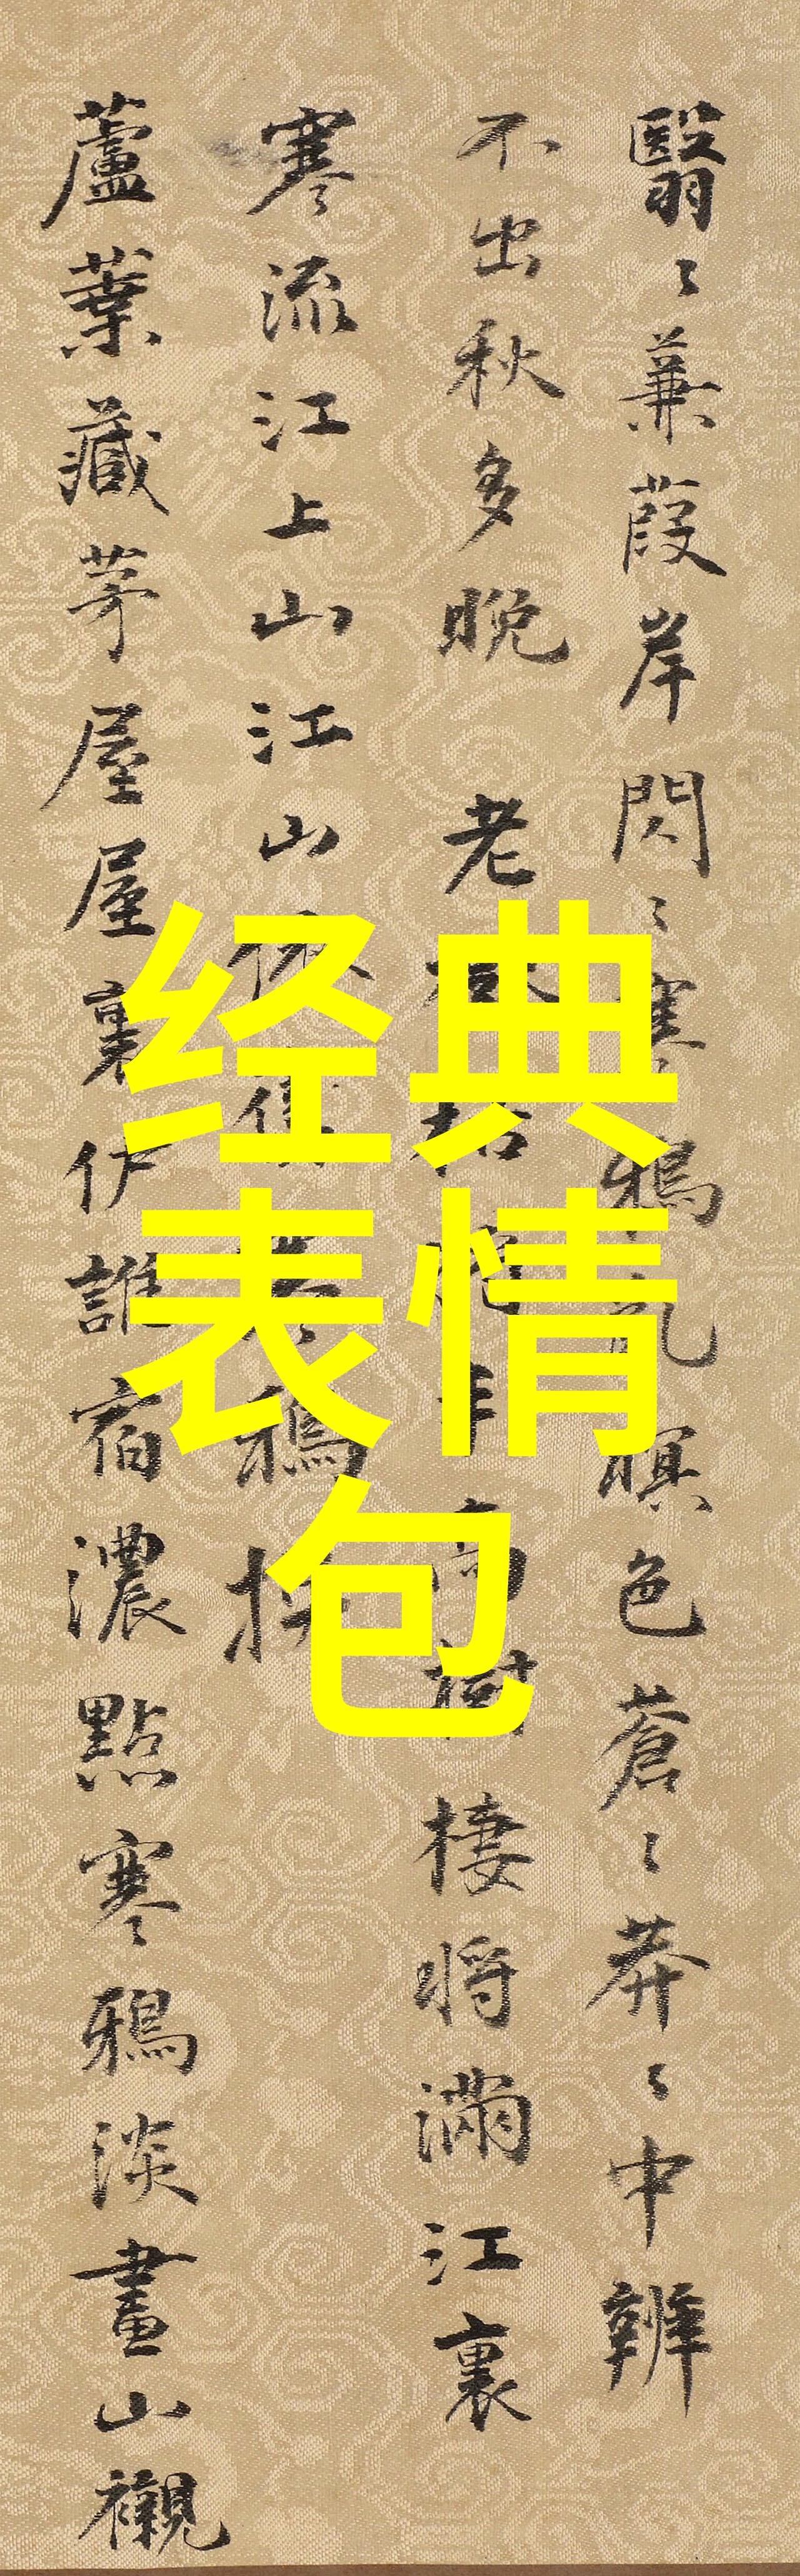 翳〻蒹葭岸閃〻寒鴉亂暝色蒼〻莽〻中辨
不出秋多晚 老枯樹棲將滿江裏
寒流江上山江山鴉
蘆葉藏茅屋屋裏伊誰宿濃點寒鴉淡畫山襯
经典
表情
包